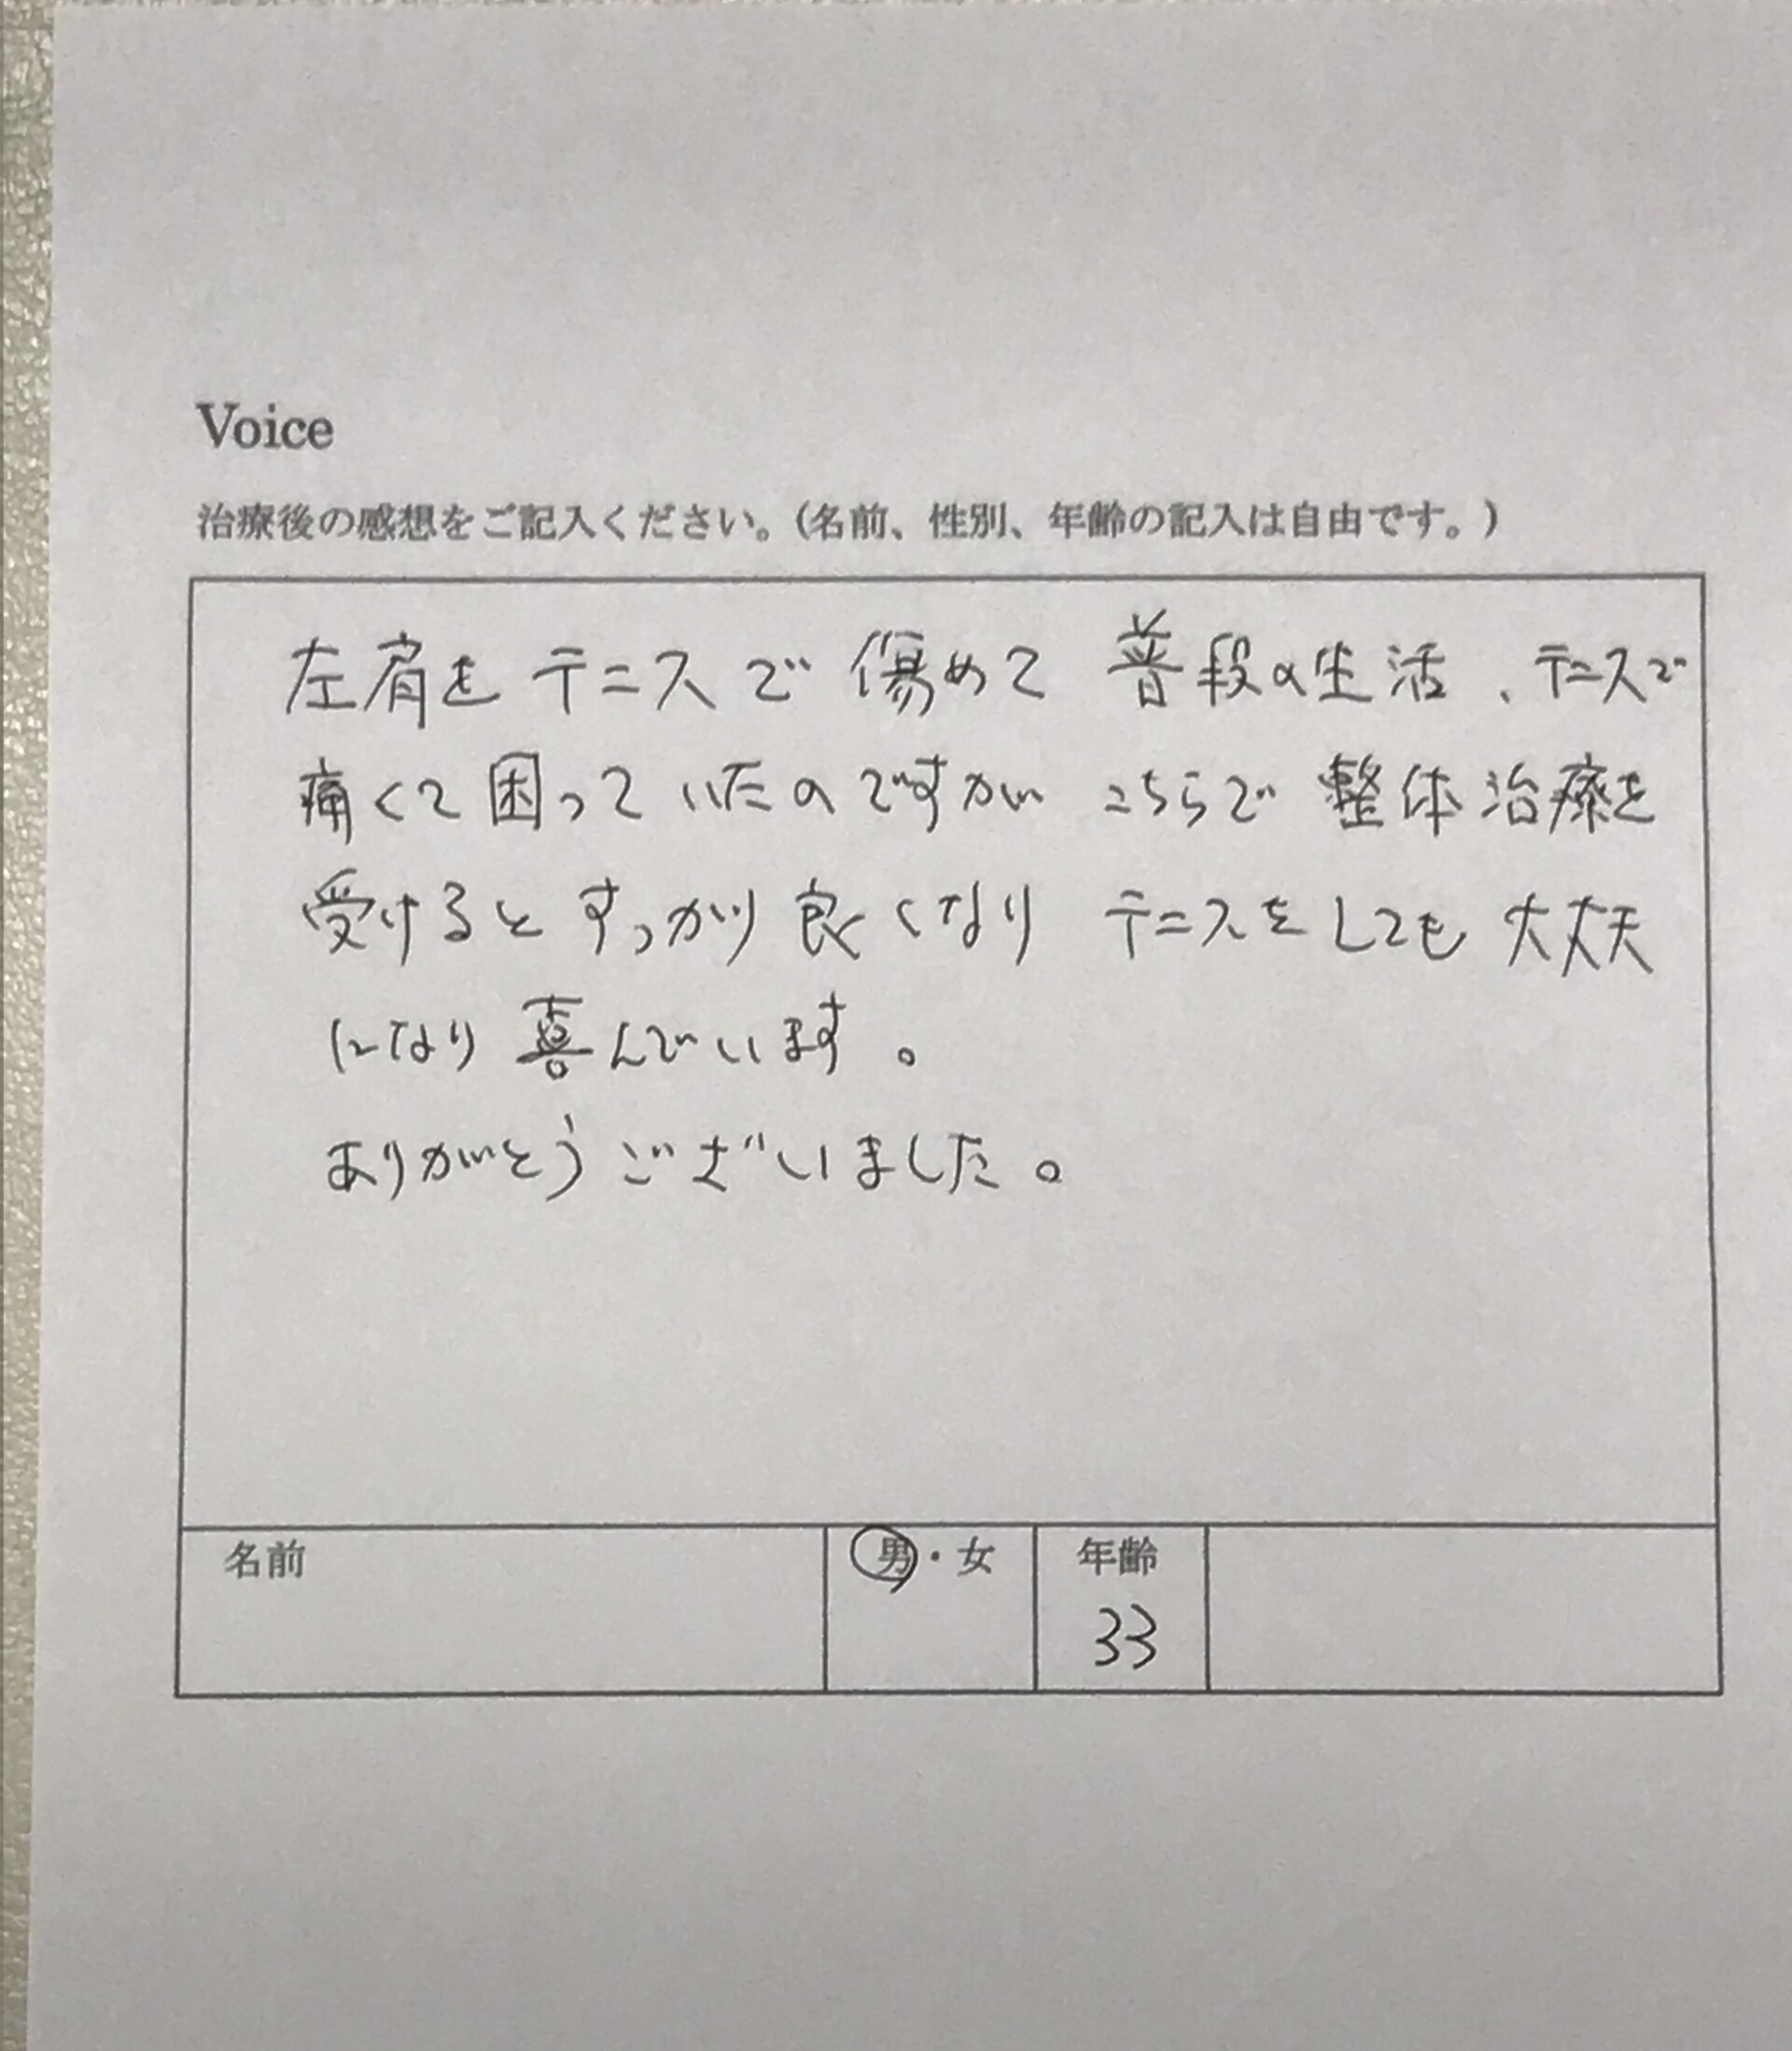 Voice
治療後の感想をご記入ください。(名前、性別、年齢の記入は自由です。)
左肩をテニスで傷めて 普段の生活、テニスで
痛くて困っていたのですが こちらで整体治療を
受けるとすっかり良くなり テニスをしても大丈夫
になり喜んでいます。
ありがとうございました。
名前 男・女 年齢
33